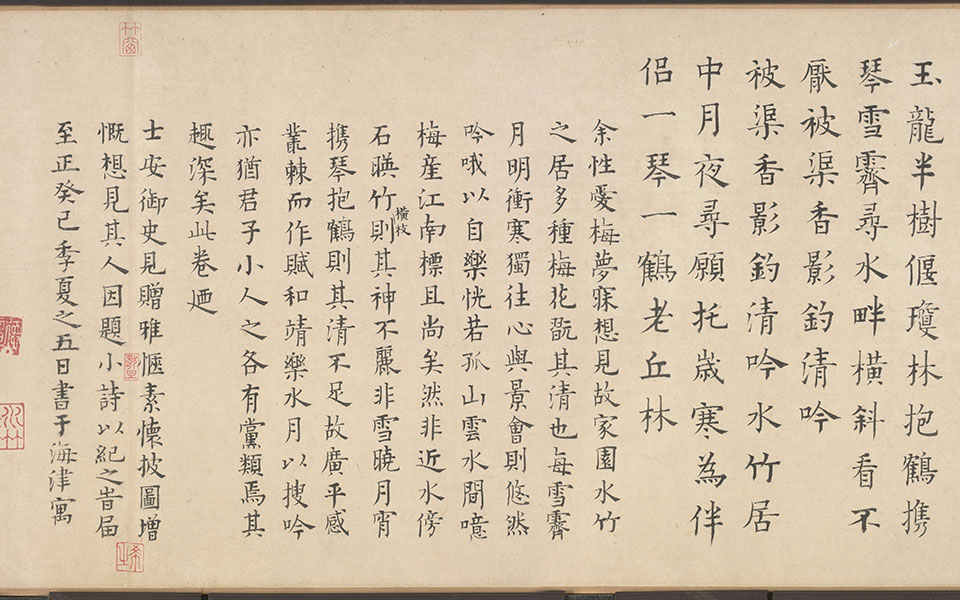 玉龍半樹偃瓊林抱鶴携
琴雪霽尋水畔橫斜看不
厭被渠香影釣清吟
被渠香影釣清吟水竹居
中月夜尋願托歲寒為伴
侶一琴一鶴老丘林
余性愛梅夢寐想見故家園水竹
之居多種梅花翫其清也每雪霽
月明衝寒獨往心與景會則悠然
吟哦以自樂恍若孤山雲水間噫
梅產江南標且尚矣然非近水傍
石暎竹橫枝則其神不麗非雪曉月宵
携琴抱鶴則其清不足故廣平感
叢棘而作賦和靖樂水月以搜吟
亦猶君子小人之各有黨類焉其
趣深矣此卷廼
士安御史見贈雅愜素懷披圖增
慨想見其人因題小詩以紀之旹屆
至正癸巳季夏之五日書于海津寓